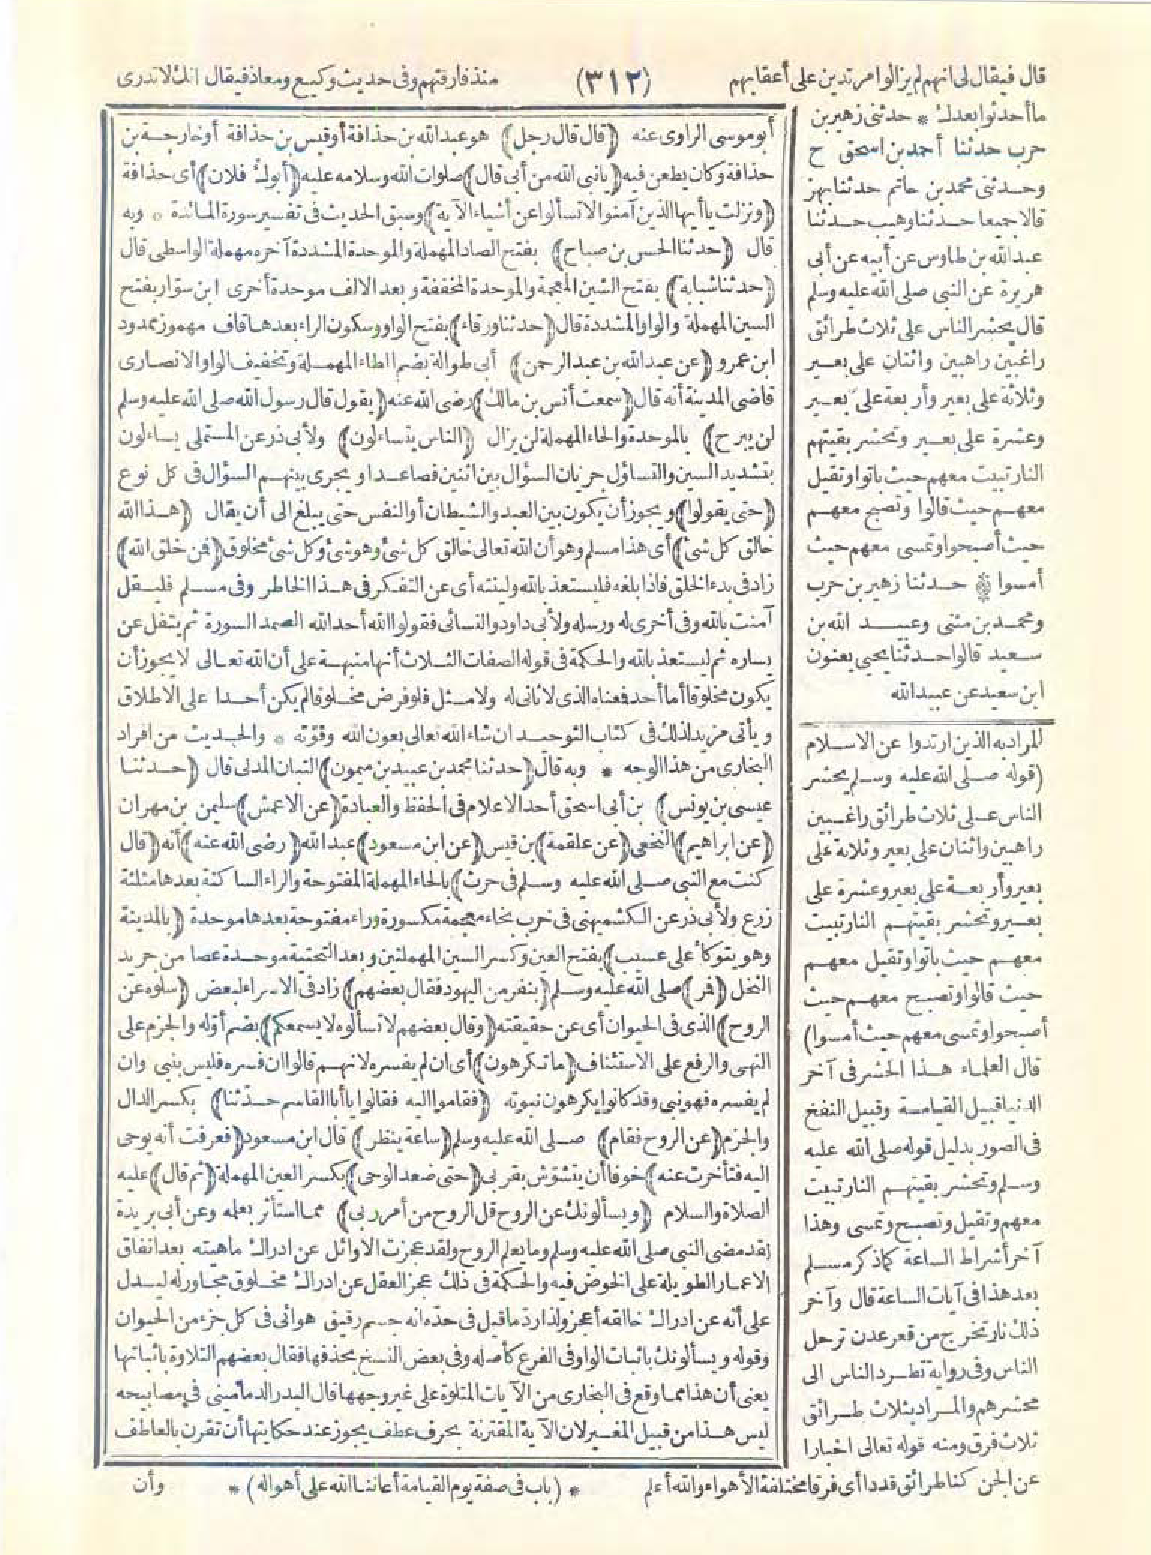 قال فيقال لى انهم لم يزالوا مرتدين على أعقابهم (٣١٢) منذ فارقتهم وفى حديث وكيع ومعاذ فيقال انك لاتدرى
ما أحدثوا بعدك * حدثنى زهير بن
حرب حدثنا أحمد بن اسحق ح
وحدثنى محمد بن حاتم حدثنا بهز
قالا جميعا حدثنا وهيب حدثنا
عبد الله بن طاوس عن أبيه عن أبى
هريرة عن النبى صلى الله عليه وسلم
قال يحشر الناس على ثلاث طرائق
راغبين راهبين واثنان على بعير
وثلاثة على بعير وأربعة على بعير
وعشرة على بعير وتحشر بقيتهم
النار تبيت معهم حيث باتوا وتقيل
معهم حيث قالوا وتصبح معهم
حيث أصبحوا وتمسى معهم حيث
أمسوا * حدثنا زهير بن حرب
ومحمد بن مثنى وعبيد الله بن
سعيد قالوا حدثنا يحيى يعنون
ابن سعيد عن عبيد الله
المراد به الذين ارتدوا عن الاسلام
(قوله صلى الله عليه وسلم يحشر
الناس على ثلاث طرائق راغبين
راهبين واثنان على بعير وثلاثة على
بعير وأربعة على بعير وعشرة على
بعير وتحشر بقيتهم النار تبيت
معهم حيث باتوا وتقيل معهم
حيث قالوا وتصبح معهم حيث
أصبحوا وتمسى معهم حيث أمسوا)
قال العلماء هذا الحشر فى آخر
الدنيا قبيل القيامة وقبيل النفخ
فى الصور بدليل قوله صلى الله عليه
وسلم وتحشر بقيتهم النار تبيت
معهم وتقيل وتصبح وتمسى وهذا
آخر أشراط الساعة كما ذكر مسلم
بعد هذا فى آيات الساعة قال وآخر
ذلك نار تخرج من قعر عدن ترحل
الناس وفى رواية تطرد الناس الى
محشرهم والمراد بثلاث طرائق
ثلاث فرق ومنه قوله تعالى اخبارا
عن الجن كنا طرائق قددا أى فرقا مختلفة الأهواء والله أعلم * (باب فى صفة يوم القيامة أعاننا الله على أهواله) * وأن
أبو موسى الراوى عنه (قال قال رجل) هو عبد الله بن حذافة أو قيس بن حذافة أو خارجة بن
حذافة وكان يطعن فيه (يا نبى الله من أبى قال) صلوات الله وسلامه عليه (أبوك فلان) أى حذافة
(ونزلت يا أيها الذين آمنوا لا تسألوا عن أشياء الآية) وسبق الحديث فى تفسير سورة المائدة * وبه
قال (حدثنا الحسن بن صباح) بفتح الصاد المهملة والموحدة المشددة آخره مهملة الواسطى قال
(حدثنا شبابة) بفتح الشين المعجمة والموحدة المخففة وبعد الالف موحدة أخرى ابن سوار بفتح
السين المهملة والواو المشددة قال (حدثنا ورقاء) بفتح الواو وسكون الراء بعدها قاف مهموز ممدود
ابن عمرو (عن عبد الله بن عبد الرحمن) أبى طوالة بضم الطاء المهملة وتخفيف الواو الانصارى
قاضى المدينة أنه قال (سمعت أنس بن مالك) رضى الله عنه (يقول قال رسول الله صلى الله عليه وسلم
لن يبرح) بالموحدة والحاء المهملة لن يزال (الناس يتساءلون) ولأبى ذر عن المستملى يساءلون
بتشديد السين والتساؤل جريان السؤال بين اثنين فصاعدا ويجرى بينهم السؤال فى كل نوع
(حتى يقولوا) ويجوز أن يكون بين العبد والشيطان أو النفس حتى يبلغ الى أن يقال (هذا الله
خالق كل شئ) أى هذا مسلم وهو أن الله تعالى خالق كل شئ وهو شئ وكل شئ مخلوق (فمن خلق الله)
زاد فى بدء الخلق فاذا بلغه فليستعذ بالله ولينته أى عن التفكر فى هذا الخاطر وفى مسلم فليقل
آمنت بالله وفى أخرى له ورسله ولأبى داود والنسائى فقولوا الله أحد الله الصمد السورة ثم يتفل عن
يساره ثم ليستعذ بالله والحكمة فى قوله الصفات الثلاث أنها منبهة على أن الله تعالى لا يجوز أن
يكون مخلوقا أما أحد فمعناه الذى لا ثانى له ولا مثل فلو فرض مخلوقا لم يكن أحدا على الاطلاق
ويأتى مزيد لذلك فى كتاب التوحيد ان شاء الله تعالى بعون الله وقوّته * والحديث من افراد
البخارى من هذا الوجه * وبه قال (حدثنا محمد بن عبيد بن ميمون) التبان المدنى قال (حدثنا
عيسى بن يونس) بن أبى اسحق أحد الاعلام فى الحفظ والعبادة (عن الاعمش) سليمن بن مهران
(عن ابراهيم) النخعى (عن علقمة) بن قيس (عن ابن مسعود) عبد الله (رضى الله عنه) أنه (قال
كنت مع النبى صلى الله عليه وسلم فى حرث) بالحاء المهملة المفتوحة والراء الساكنة بعدها مثلثة
زرع ولأبى ذر عن الكشميهنى فى خرب بخاء معجمة مكسورة وراء مفتوحة بعدها موحدة (بالمدينة
وهو يتوكأ على عسيب) بفتح العين وكسر السين المهملتين وبعد التحتية موحدة عصا من جريد
النخل (فمر) صلى الله عليه وسلم (بنفر من اليهود فقال بعضهم) زاد فى الاسراء لبعض (سلوه عن
الروح) الذى فى الحيوان أى عن حقيقته (وقال بعضهم لا تسألوه لا يسمعكم) بضم أوله والجزم على
النهى والرفع على الاستئناف (ما تكرهون) أى ان لم يفسره لانهم قالوا ان فسره فليس بنبى وان
لم يفسره فهو نبى وقد كانوا يكرهون نبوته (فقاموا اليه فقالوا يا أبا القاسم حدثنا) بكسر الدال
والجزم (عن الروح فقام) صلى الله عليه وسلم (ساعة ينظر) قال ابن مسعود (فعرفت أنه يوحى
اليه فتأخرت عنه) خوفا أن يتشوش بقربى (حتى صعد الوحى) بكسر العين المهملة (ثم قال) عليه
الصلاة والسلام (ويسألونك عن الروح قل الروح من أمر ربى) مما استأثر بعلمه وعن أبى بريدة
لقد مضى النبى صلى الله عليه وسلم وما يعلم الروح ولقد عجزت الاوائل عن ادراك ماهيته بعد انفاق
الاعمار الطويلة على الخوض فيه والحكمة فى ذلك عجز العقل عن ادراك مخلوق مجاور له ليدل
على أنه عن ادراك خالقه أعجز ولذا رد ما قيل فى حده انه جسم رقيق هوائى فى كل جزء من الحيوان
وقوله ويسألونك باثبات الواو فى الفرع كأصله وفى بعض النسخ بحذفها فقال بعضهم التلاوة باثباتها
يعنى أن هذا مما وقع فى البخارى من الآيات المتلوة على غير وجهها قال البدر الدمامينى فى مصابيحه
ليس هذا من قبيل المغير لان الآية المقترنة بحرف عطف يجوز عند حكايتها أن تقرن بالعاطف